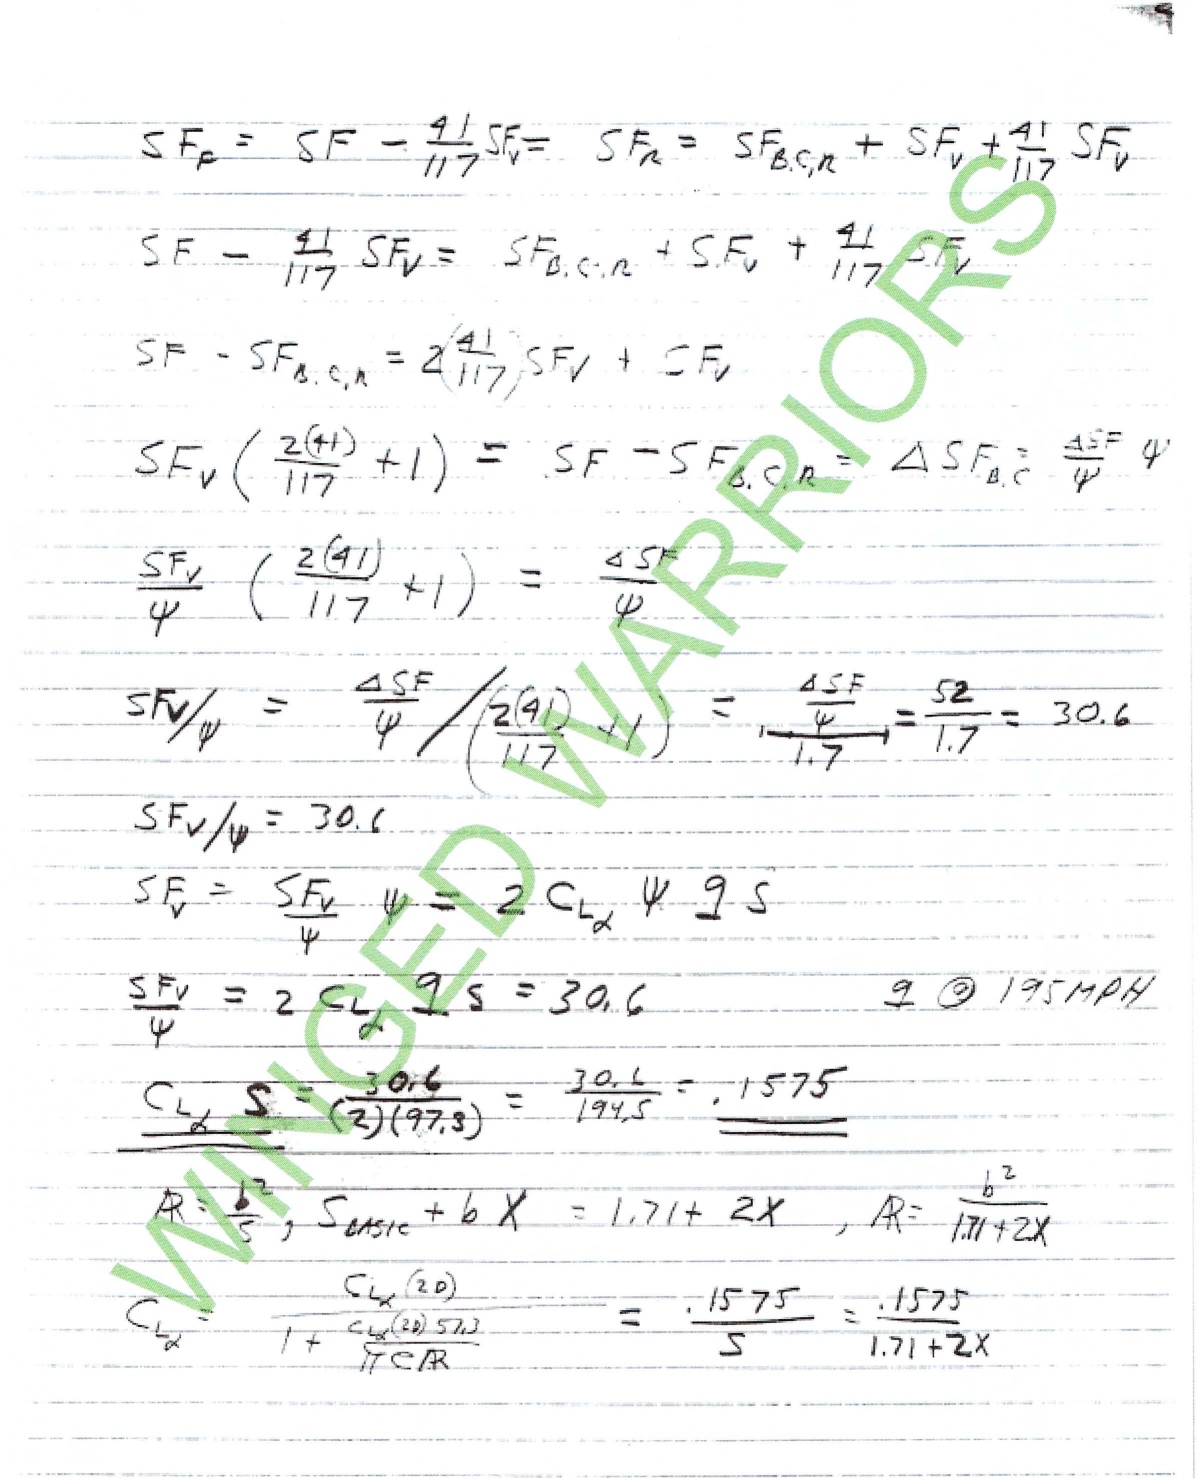 SF_F = SF - 41/117 SF_V = SF_R = SF_B.C,R + SF_V + 41/117 SF_V
SF - 41/117 SF_V = SF_B.C.R + SF_V + 41/117 SF_V
SF - SF_B.C,R = 2(41/117) SF_V + SF_V
SF_V (2(41)/117 + 1) = SF - SF_B.C.R = ΔSF_B.C = ΔSF/Ψ Ψ
SF_V/Ψ (2(41)/117 + 1) = ΔSF/Ψ
SF_V/Ψ = ΔSF/Ψ / (2(41)/117 + 1) = ΔSF/Ψ/1.7 = 52/1.7 = 30.6
SF_V/Ψ = 30.6
SF_V = SF_V/Ψ Ψ = 2 C_Lα Ψ q S
SF_V/Ψ = 2 C_Lα q S = 30.6 q @ 195 MPH
C_Lα S = 30.6/(2)(97.3) = 30.6/194.5 = .1575
AR = b²/S, S_BASIC + b X = 1.71 + 2X, AR = b²/1.71+2X
C_Lα = C_Lα(2D)/1 + C_Lα(2D) 57.3/π e AR = .1575/S = .1575/1.71+2X
WINGED WARRIORS